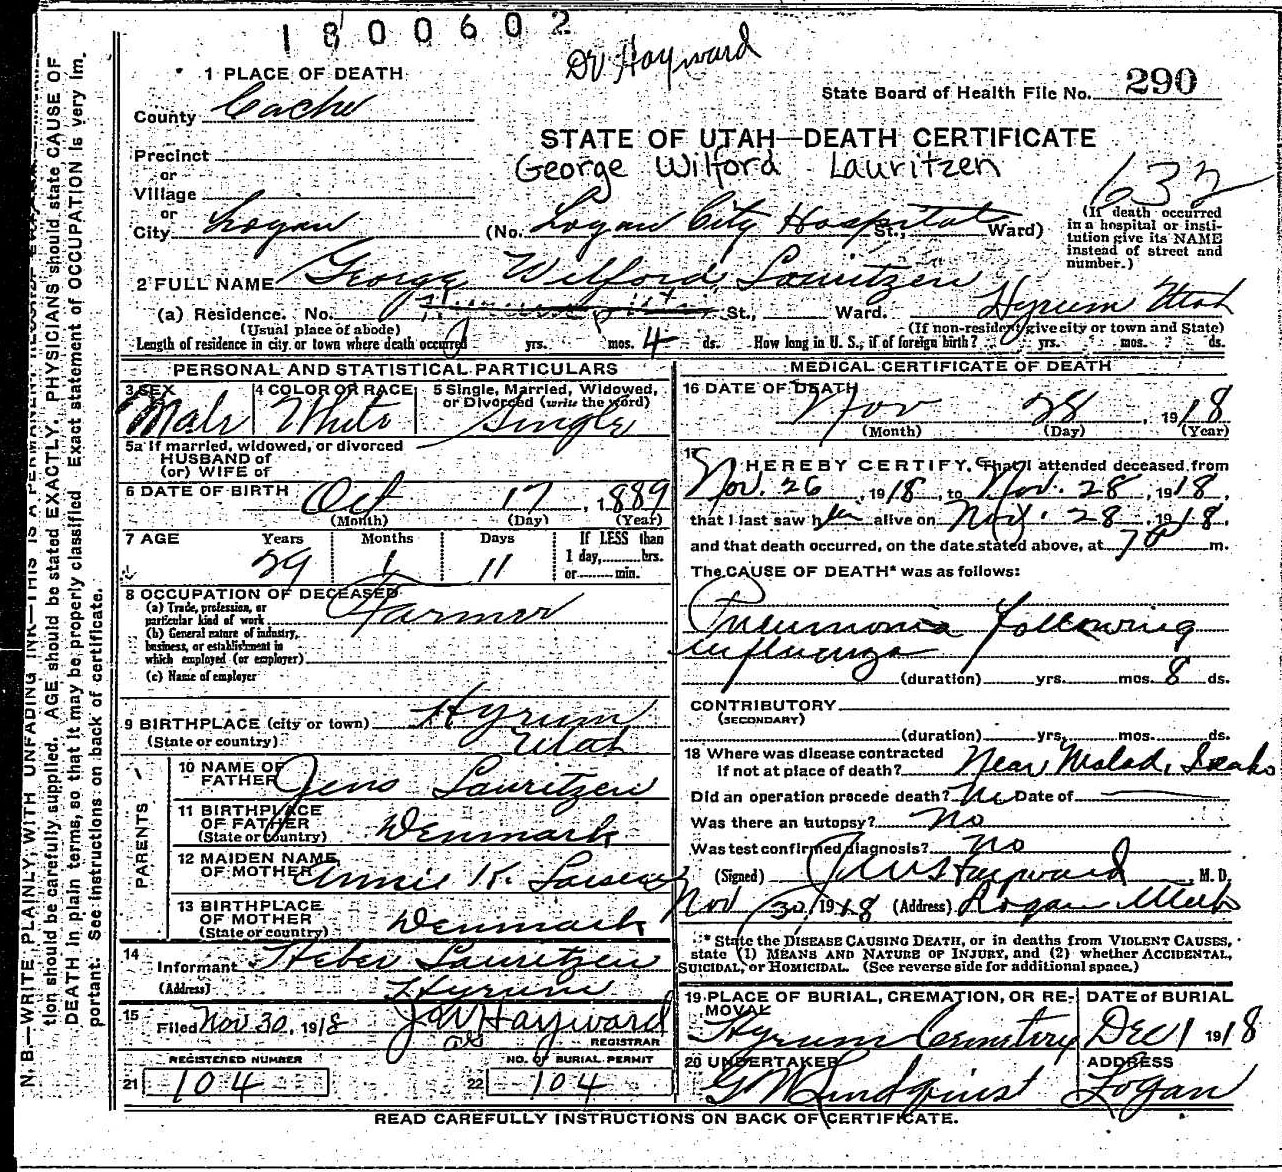 1800602
Dr Hayward
1 PLACE OF DEATH
County Cache
State Board of Health File No. 290
STATE OF UTAH—DEATH CERTIFICATE
George Wilford Lauritzen
632
Precinct
or
Village
or
City Logan (No. Logan City Hospital St., Ward)
(If death occurred in a hospital or insti-
tution give its NAME
instead of street and
number.)
2 FULL NAME George Wilford Lauritzen
(a) Residence. No. St., Ward. Hyrum Utah
(Usual place of abode) (If non-resident give city or town and State)
Length of residence in city or town where death occurred yrs. mos. 4 ds. How long in U. S., if of foreign birth? yrs. mos. ds.
PERSONAL AND STATISTICAL PARTICULARS
3 SEX Male
4 COLOR OR RACE White
5 Single, Married, Widowed,
or Divorced (write the word)
Single
5a If married, widowed, or divorced
HUSBAND of
(or) WIFE of
6 DATE OF BIRTH Oct 17, 1889
(Month) (Day) (Year)
7 AGE Years Months Days
29 1 11
If LESS than
1 day, hrs.
or min.
8 OCCUPATION OF DECEASED
(a) Trade, profession, or
particular kind of work Farmer
(b) General nature of industry,
business, or establishment in
which employed (or employer)
(c) Name of employer
9 BIRTHPLACE (city or town) Hyrum
(State or country) Utah
PARENTS
10 NAME OF
FATHER Jens Lauritzen
11 BIRTHPLACE
OF FATHER
(State or country) Denmark
12 MAIDEN NAME
OF MOTHER Annie K. Larsen
13 BIRTHPLACE
OF MOTHER
(State or country) Denmark
14
Informant Heber Lauritzen
(Address) Hyrum
15
Filed Nov 30, 1918 J W Hayward
REGISTRAR
REGISTERED NUMBER
21 104
NO. OF BURIAL PERMIT
22 104
MEDICAL CERTIFICATE OF DEATH
16 DATE OF DEATH
Nov 28, 1918
(Month) (Day) (Year)
17
I HEREBY CERTIFY, That I attended deceased from
Nov. 26, 1918, to Nov. 28, 1918,
that I last saw him alive on Nov. 28, 1918,
and that death occurred, on the date stated above, at 7 m.
The CAUSE OF DEATH* was as follows:
Pneumonia following
influenza
(duration) yrs. mos. 8 ds.
CONTRIBUTORY
(SECONDARY)
(duration) yrs. mos. ds.
18 Where was disease contracted
if not at place of death? Near Malad, Idaho
Did an operation precede death? No Date of
Was there an autopsy? No
Was test confirmed diagnosis? No
(Signed) J W Hayward M. D.
Nov 30, 1918 (Address) Logan Utah
* State the DISEASE CAUSING DEATH, or in deaths from VIOLENT CAUSES,
state (1) MEANS AND NATURE OF INJURY, and (2) whether ACCIDENTAL,
SUICIDAL, or HOMICIDAL. (See reverse side for additional space.)
19 PLACE OF BURIAL, CREMATION, OR RE-
MOVAL
Hyrum Cemetery
DATE of BURIAL
Dec 1 1918
20 UNDERTAKER
G W Lindquist
ADDRESS
Logan
READ CAREFULLY INSTRUCTIONS ON BACK OF CERTIFICATE.
N. B.—WRITE PLAINLY, WITH UNFADING INK—THIS IS A PERMANENT RECORD.
tion should be carefully supplied. AGE should be stated EXACTLY. PHYSICIANS should state CAUSE OF
DEATH in plain terms, so that it may be properly classified. Exact statement of OCCUPATION is very im-
portant. See instructions on back of certificate.